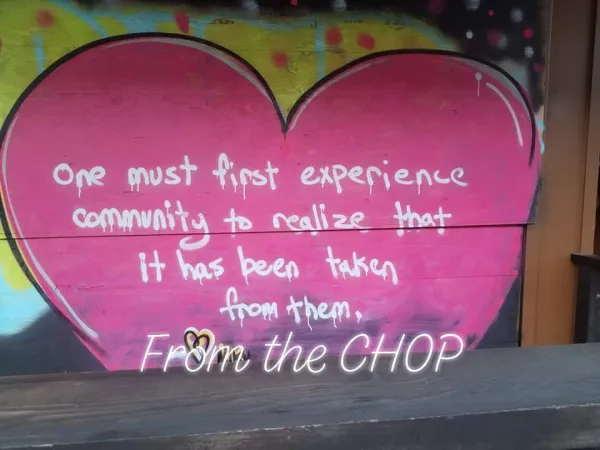 One must first experience
community to realize that
it has been taken
from them.
From the CHOP